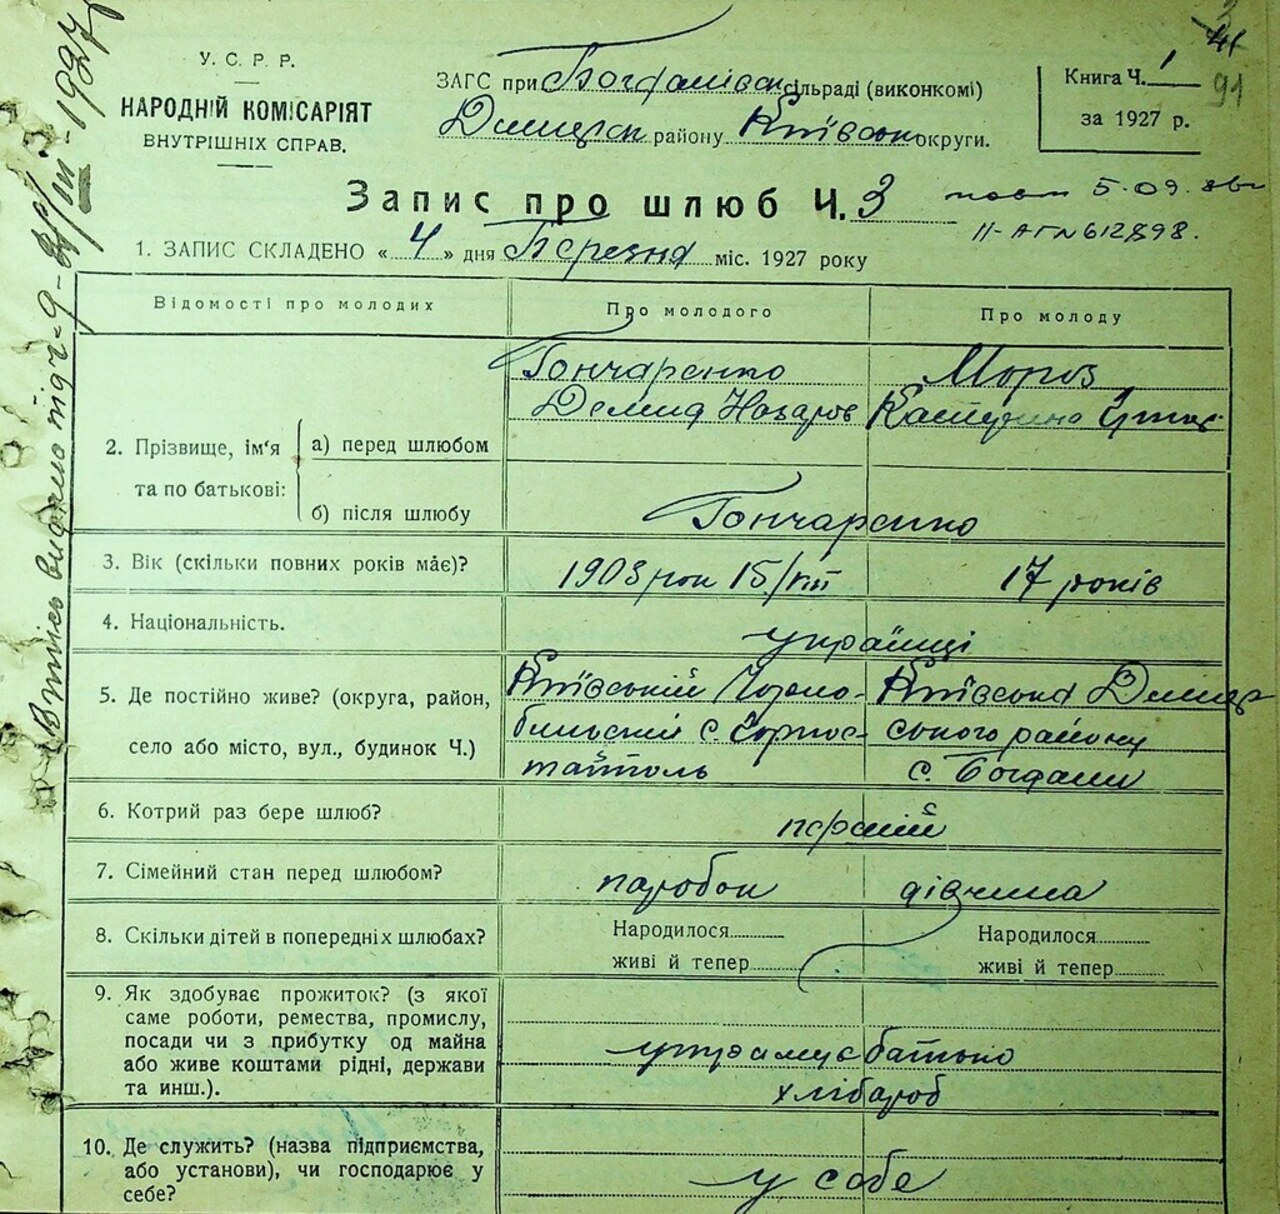 У. С. Р. Р.
НАРОДНІЙ КОМІСАРІЯТ
ВНУТРІШНІХ СПРАВ.
ЗАГС при Богданівск сільраді (виконкомі)
Димерск району Київськ округи.
Книга Ч. 1
за 1927 р.
41
91
Запис про шлюб Ч. 3
повт 5.09.
II-АГ№612898.
1. ЗАПИС СКЛАДЕНО « 4 » дня Березня міс. 1927 року
Відомості про молодих
Про молодого
Про молоду
Гончаренко
Мороз
Демид Назаров
Катерина
2. Прізвище, ім'я та по батькові:
а) перед шлюбом
б) після шлюбу
Гончаренко
3. Вік (скільки повних років має)?
1903 рок 15/VIII
17 років
4. Національність.
українці
5. Де постійно живе? (округа, район,
село або місто, вул., будинок Ч.)
Київській Чорно-
бильскій с.
Київська Димер
ського району
с. Богдани
6. Котрий раз бере шлюб?
перший
7. Сімейний стан перед шлюбом?
парубок
дівчина
8. Скільки дітей в попередніх шлюбах?
Народилося
живі й тепер
Народилося
живі й тепер
9. Як здобуває прожиток? (з якої
саме роботи, ремества, промислу,
посади чи з прибутку од майна
або живе коштами рідні, держави
та инш.).
утримує батько
хлібороб
10. Де служить? (назва підприємства,
або установи), чи господарює у
себе?
у себе